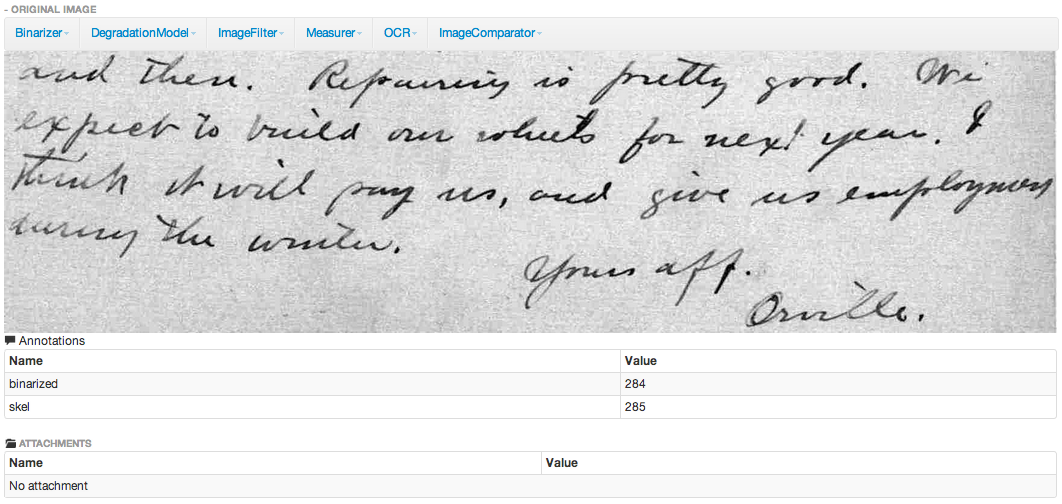 - ORIGINAL IMAGE
Binarizer DegradationModel ImageFilter Measurer OCR ImageComparator
and then. Repairing is pretty good. We
expect to build our wheels for next year. I
think it will pay us, and give us employment
during the winter.
Yours aff.
Orville.
Annotations
Name Value
binarized 284
skel 285
ATTACHMENTS
Name Value
No attachment